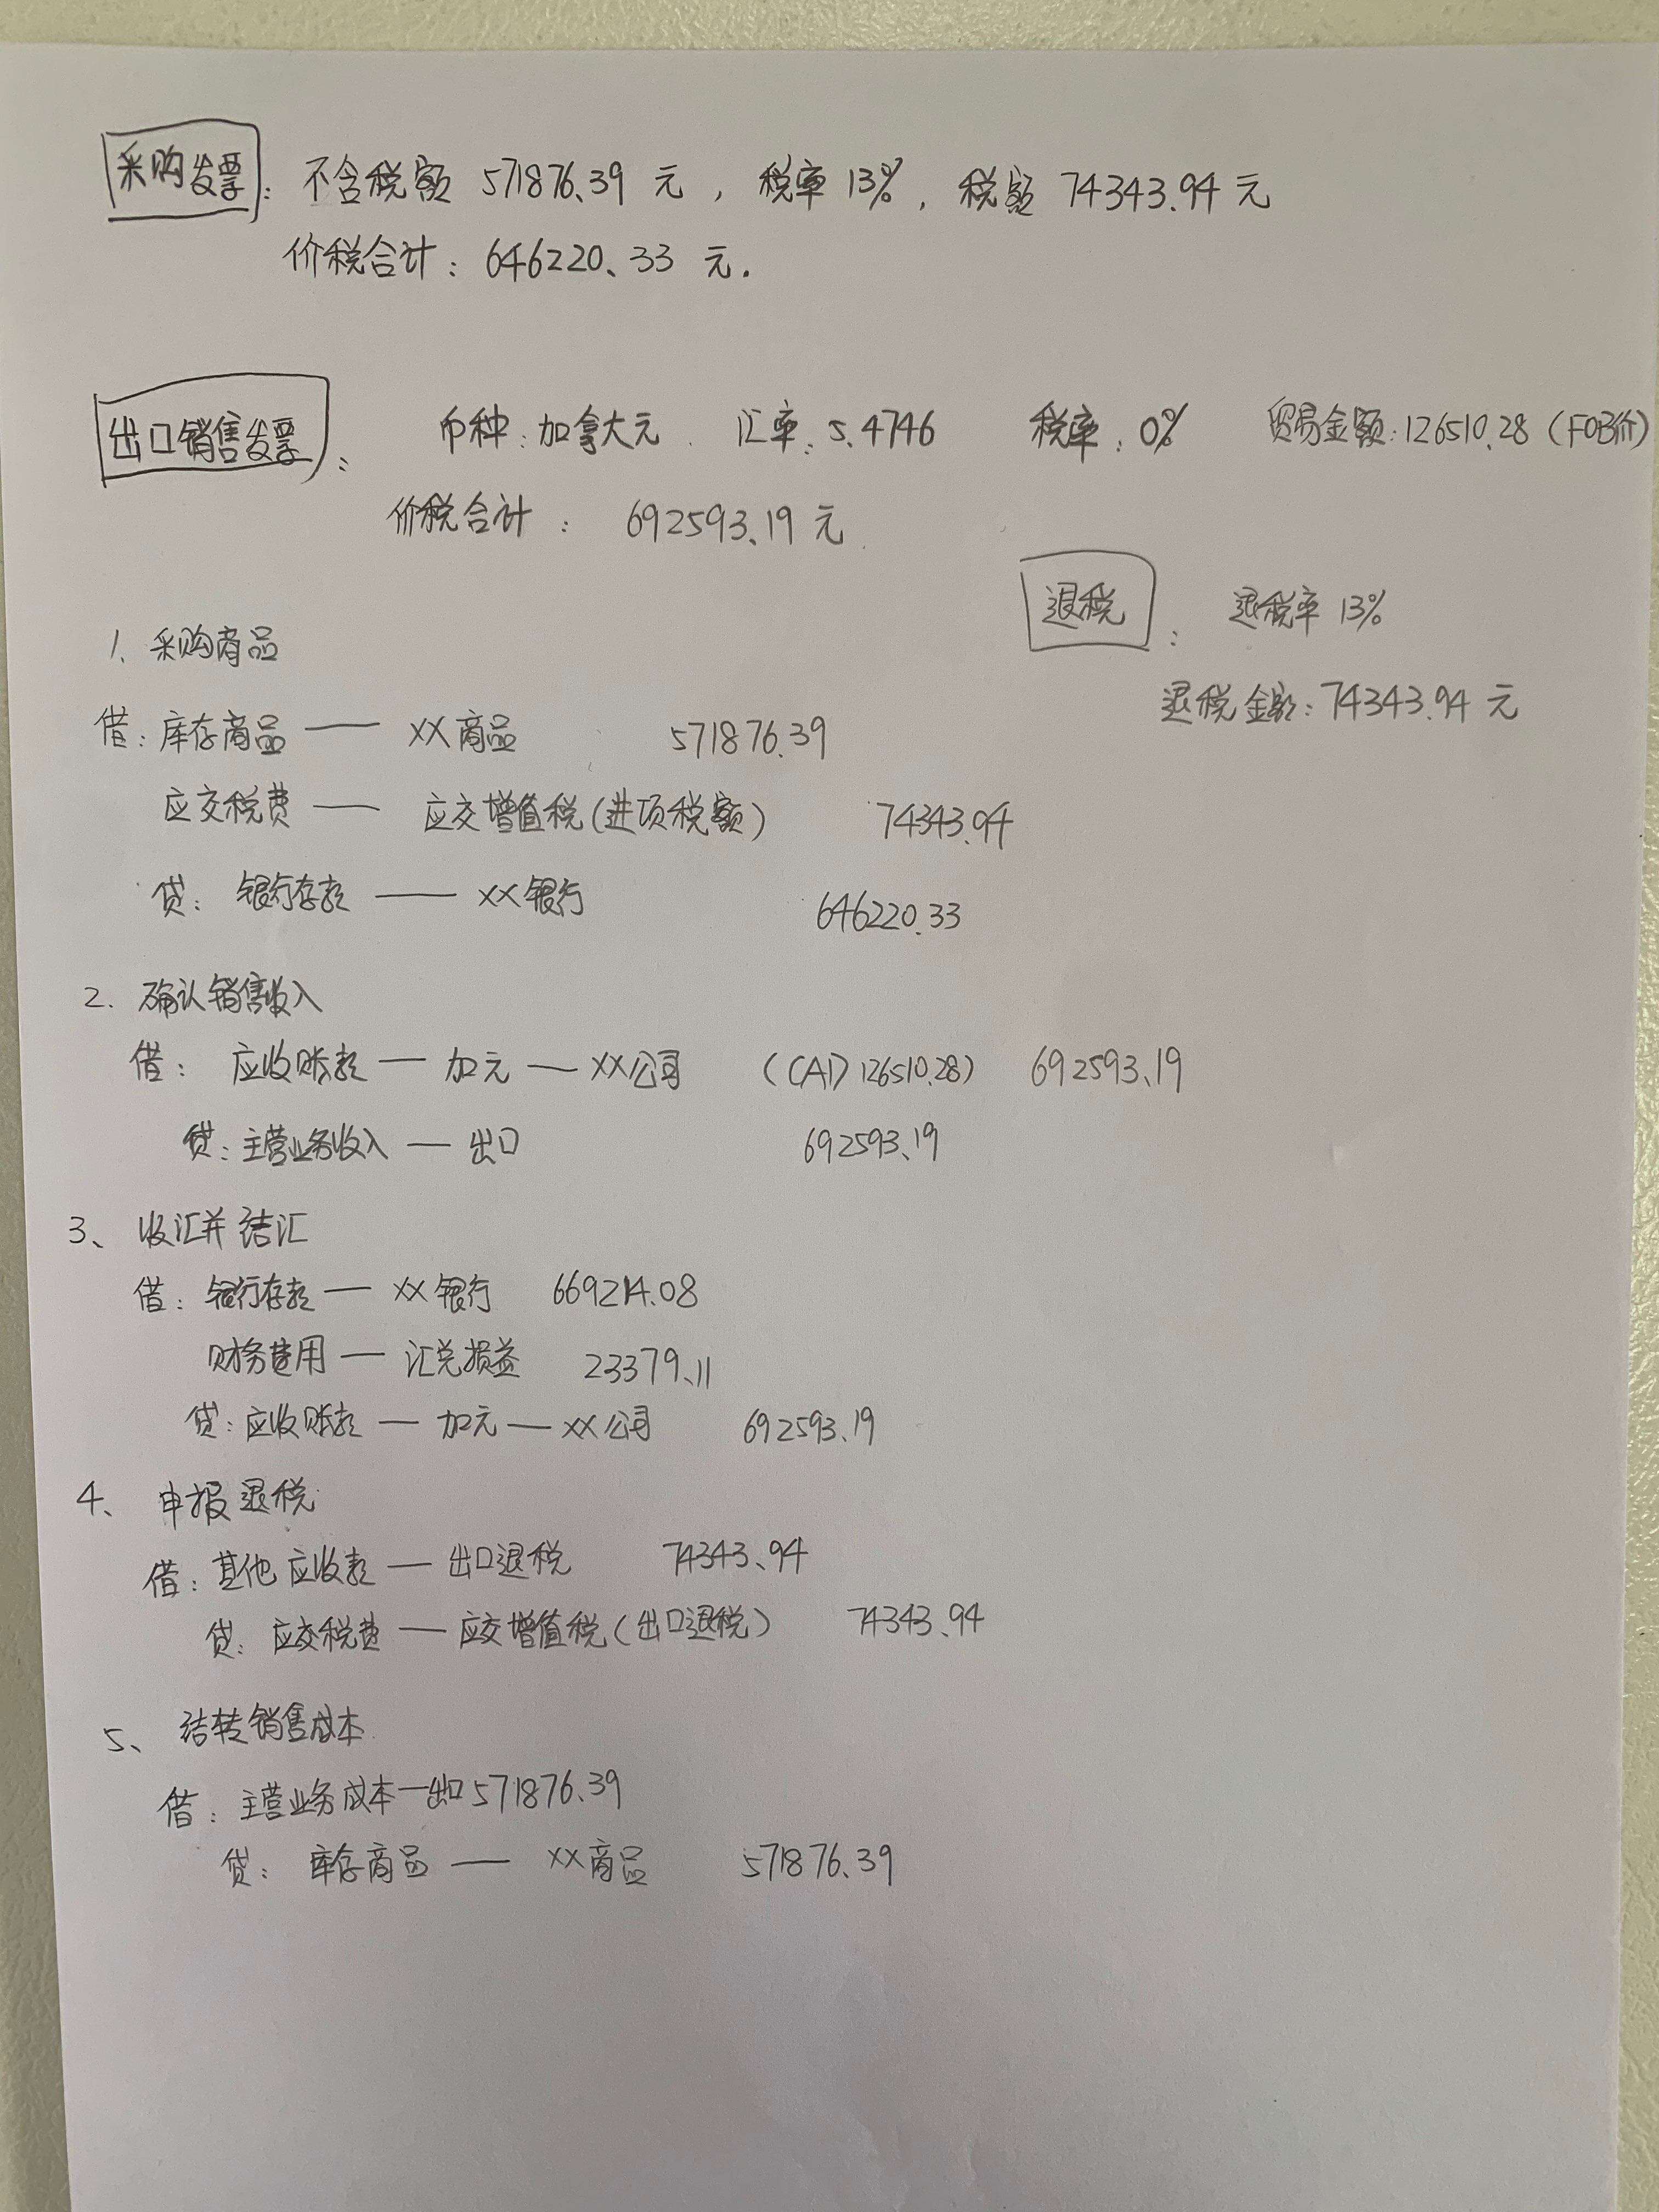 采购发票：不含税额 571876.39 元，税率13%，税额 74343.94 元
价税合计：646220.33 元.
出口销售发票：币种：加拿大元. 汇率：5.4746 税率：0% 贸易金额：126510.28（FOB价）
价税合计：692593.19 元.
退税：退税率 13%
退税金额：74343.94 元
1、采购商品
借：库存商品——XX商品 571876.39
应交税费——应交增值税(进项税额) 74343.94
贷：银行存款——XX银行 646220.33
2.确认销售收入
借：应收账款—加元—XX公司 (CAD 126510.28) 692593.19
贷：主营业务收入—出口 692593.19
3、收汇并结汇
借：银行存款—XX银行 669214.08
财务费用—汇兑损益 23379.11
贷：应收账款—加元—XX公司 692593.19
4、申报退税
借：其他应收款—出口退税 74343.94
贷：应交税费—应交增值税(出口退税) 74343.94
5、结转销售成本
借：主营业务成本—出口 571876.39
贷：库存商品——XX商品 571876.39